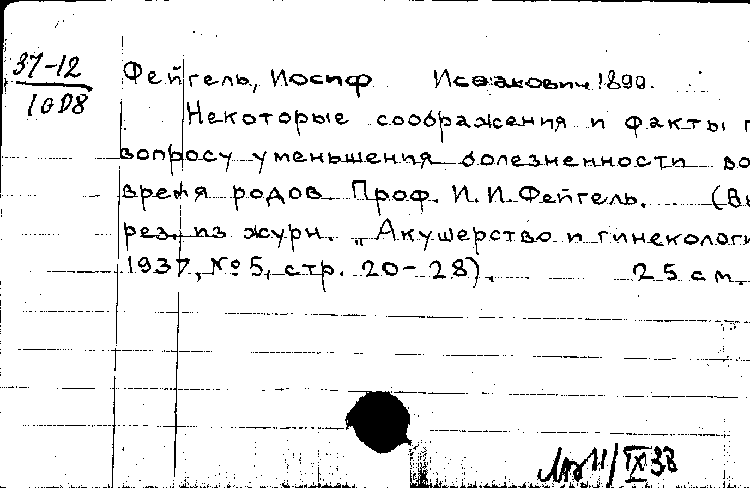 37-12
1008
Фейгель, Иосиф Исаакович 1899.
Некоторые соображения и факты п
вопросу уменьшения болезненности во
время родов. Проф. И. И. Фейгель. (Вы
рез. из журн. "Акушерство и гинекологи
1937, № 5, стр. 20-28). 25 см.
11/IX 38